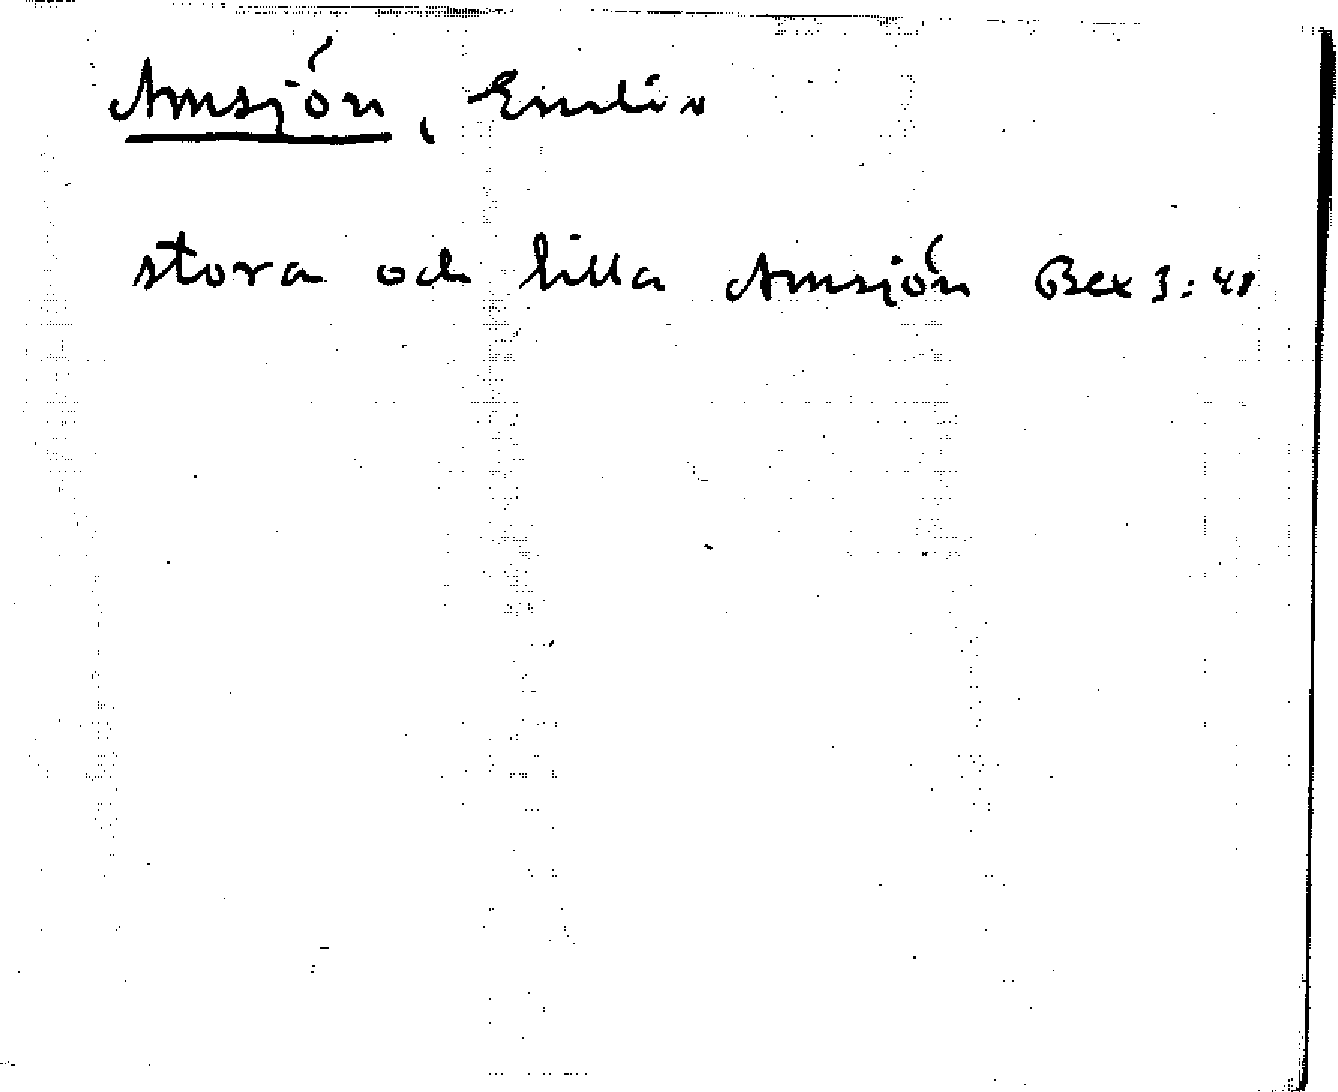 Amsjön, Enslöv
stora och lilla Amsjön Bex 3:48